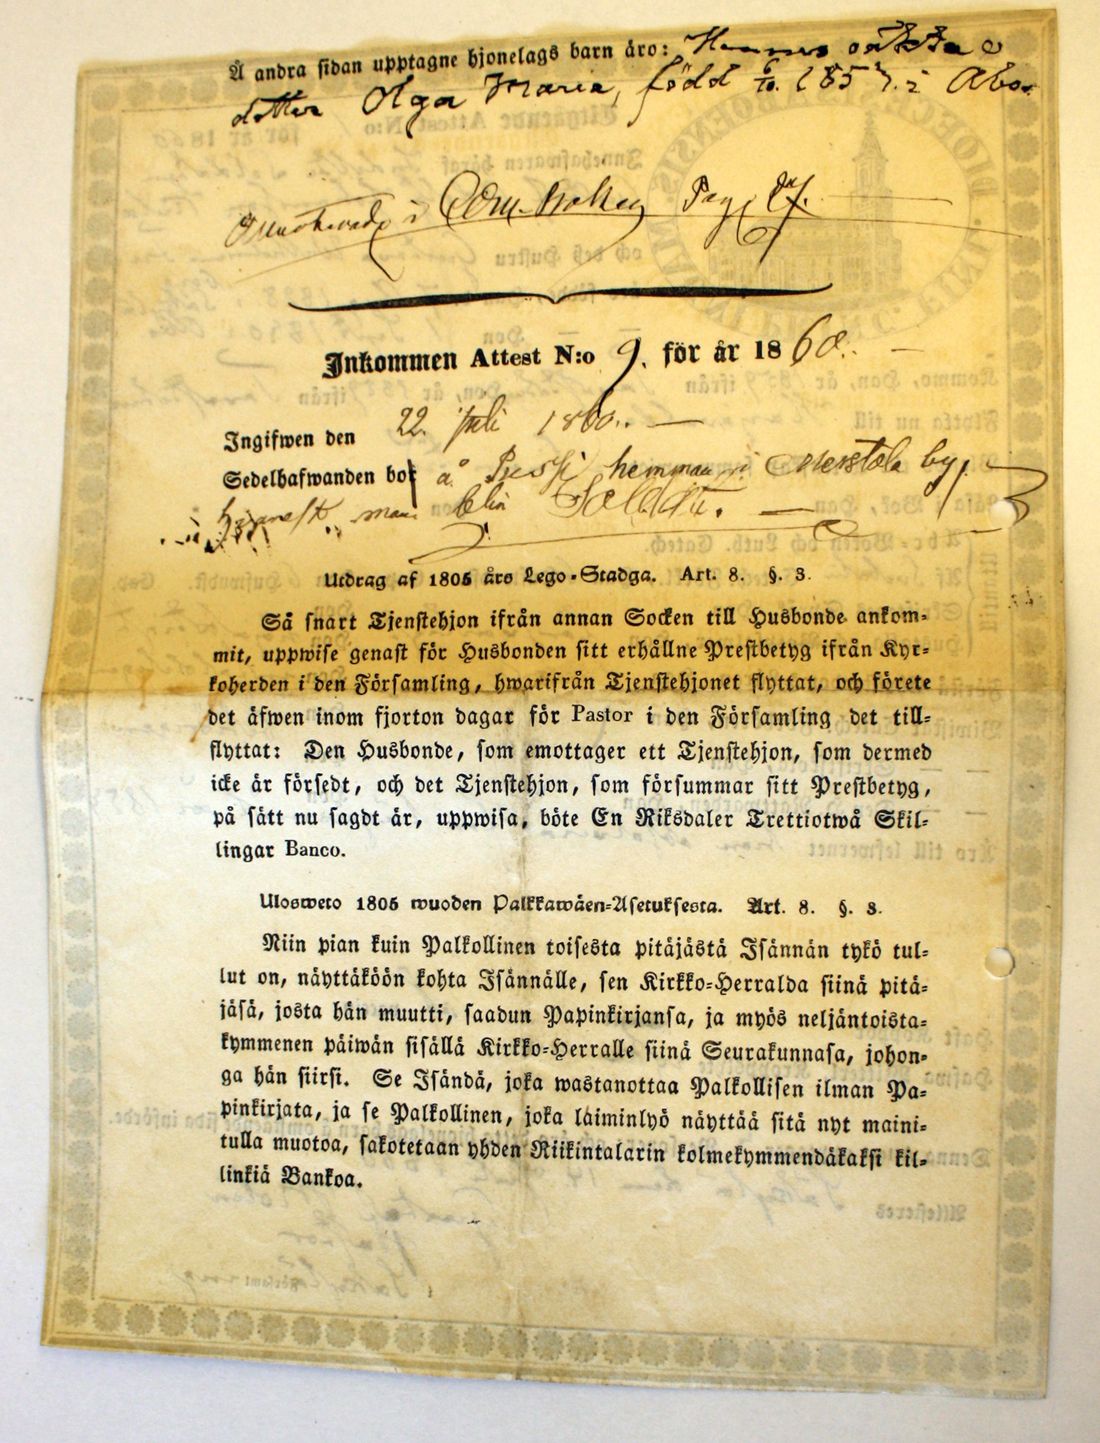 Å andra sidan upptagne hjonelags barn äro: Hennes oäkta
dotter Olga Maria, född 6/10. 1857. i Åbo.
Annoterade i Com. Boken Pag. 27.
Inkommen Attest N:o 9. för år 1860.
Ingifwen den 22. Juli 1860.
Sedelhafwanden bor å hemman i by,
man blir Soldat.
Utdrag af 1805 års Lego-Stadga. Art. 8. §. 3.
Så snart Tjenstehjon ifrån annan Socken till Husbonde ankom-
mit, uppwise genast för Husbonden sitt erhållne Prestbetyg ifrån Kyr-
koherden i den Församling, hwarifrån Tjenstehjonet flyttat, och förete
det äfwen inom fjorton dagar för Pastor i den Församling det till-
flyttat: Den Husbonde, som emottager ett Tjenstehjon, som dermed
icke är försedt, och det Tjenstehjon, som försummar sitt Prestbetyg,
på sätt nu sagdt är, uppwisa, böte En Riksdaler Trettiotwå Skil-
lingar Banco.
Ulosweto 1805 wuoden Palkkawäen-Asetuksesta. Art. 8. §. 3.
Niin pian kuin Palkollinen toisesta pitäjästä Isännän tykö tul-
lut on, näyttäköön kohta Isännälle, sen Kirkko-Herralda siinä pitä-
jäsä, josta hän muutti, saadun Papinkirjansa, ja myös neljäntoista-
kymmenen päiwän sisällä Kirkko-Herralle siinä Seurakunnasa, johon-
ga hän siirsi. Se Isändä, joka wastanottaa Palkollisen ilman Pa-
pinkirjata, ja se Palkollinen, joka laiminlyö näyttää sitä nyt maini-
tulla muotoa, sakotetaan yhden Riikintalarin kolmekymmendäkaksi kil-
linkiä Bankoa.